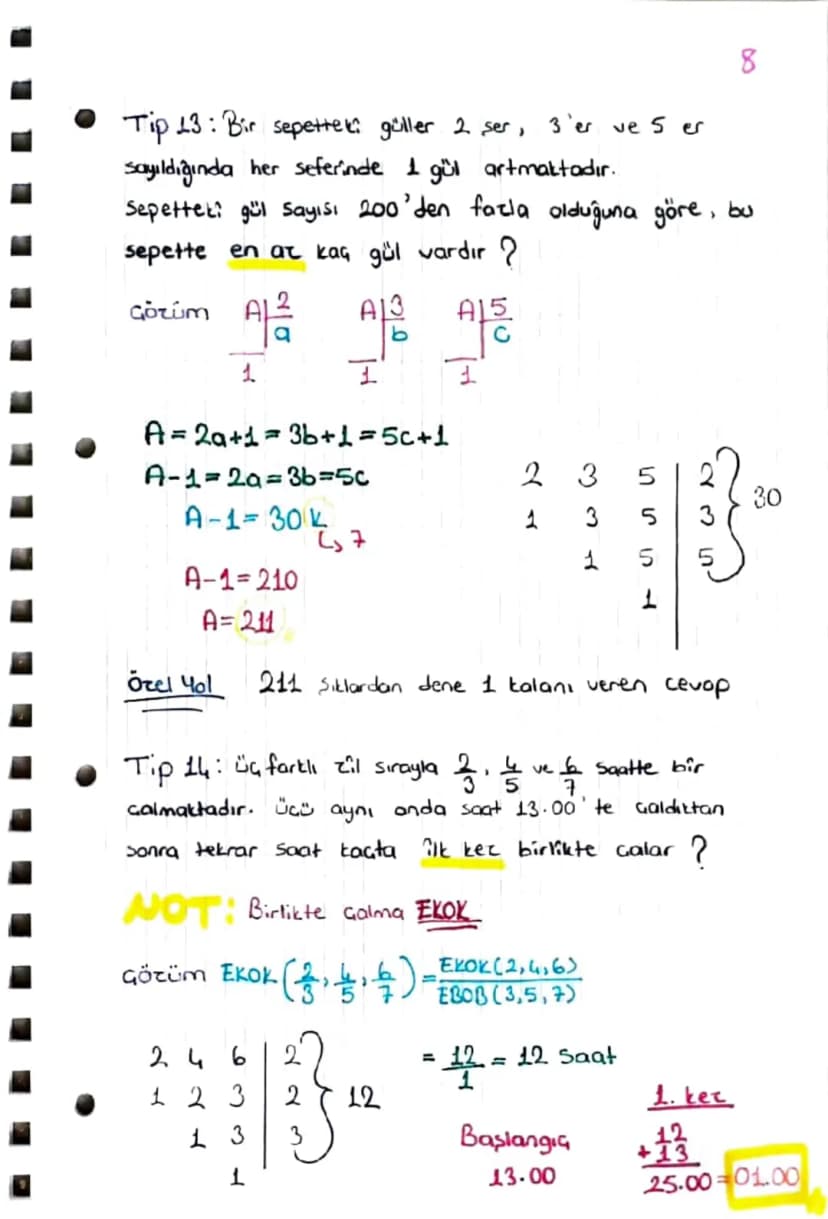 8
Tip 13: Bir sepetteki güller 2 ser, 3'er ve 5 er
sayıldığında her seferinde 1 gül artmaktadır.
Sepetteki gül sayısı 200'den fazla olduğuna göre, bu
sepette en az kaç gül vardır?
Çözüm A|2 A|3 A|5
a b c
1 1 1
A = 2a+1 = 3b+1 = 5c+1
A-1 = 2a = 3b = 5c
A-1 = 30k
↳ 7
A-1 = 210
A = 211
2 3 5 | 2
1 3 5 | 3 } 30
1 5 | 5
1
Özel Yol 211 Şıklardan dene 1 kalanı veren cevap
Tip 14: Üç farklı zil sırayla 2/3, 4/5 ve 6/7 saatte bir
çalmaktadır. Üçü aynı anda saat 13.00'te çaldıktan
sonra tekrar saat kaçta ilk kez birlikte çalar?
NOT: Birlikte çalma EKOK
Çözüm EKOK (2/3, 4/5, 6/7) = EKOK(2,4,6) / EBOB(3,5,7)
= 12/1 = 12 saat
2 4 6 | 2
1 2 3 | 2 } 12
1 3 | 3
1
Başlangıç
13.00
1. kez
12
+13
25.00 = 01.00